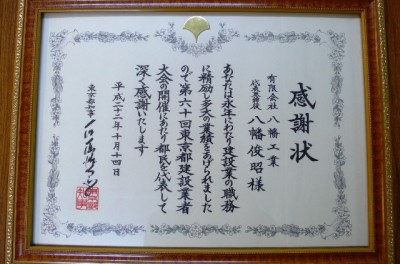 感謝状
有限会社 八幡工業
代表取締役 八幡俊昭様
あなたは永年にわたり建設業の職務
に精励し多大の業績をあげられました
ので第六十回東京都建設業者
大会の開催にあたり都民を代表して
深く感謝いたします
平成二十二年十月十四日
東京都知事